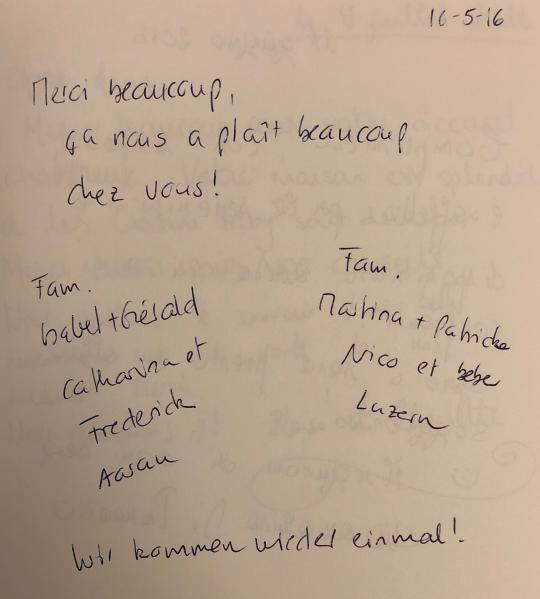 16-5-16
Merci beaucoup,
ça nous a plaît beaucoup
chez vous!
Fam.
Isabel + Gérald
Catharina et
Frederick
Aarau
Fam.
Martina + Patricke
Nico et bebe
Luzern
Wir kommen wieder einmal!